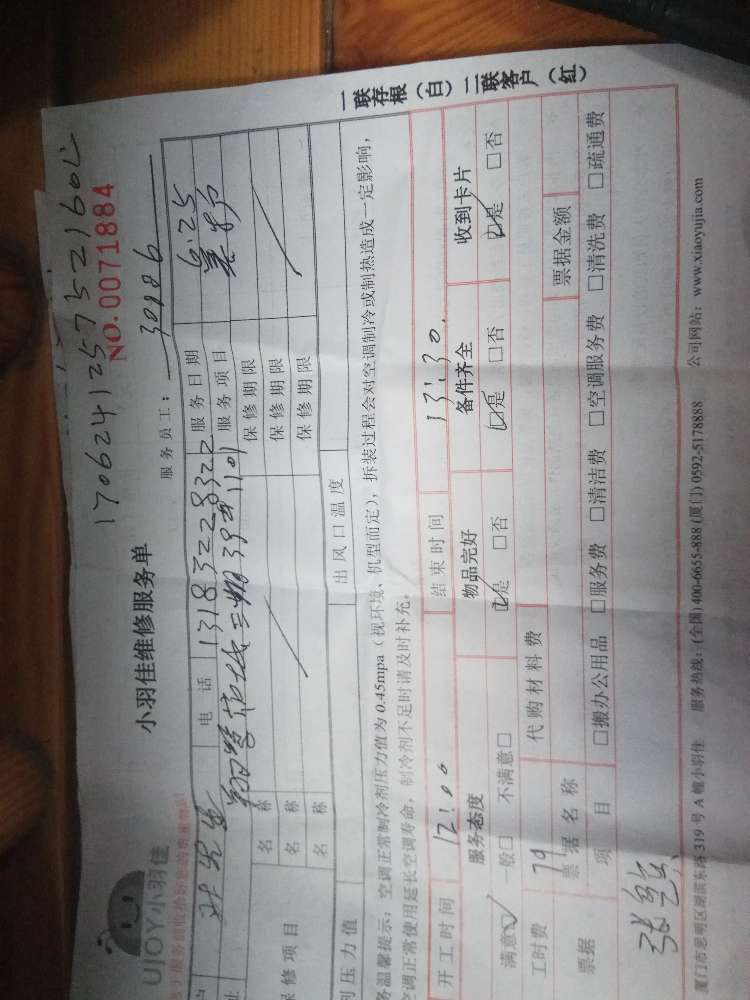 170624125752160
NO.0071884
UJOY小羽佳
小羽佳维修服务单
服务员工：30186
先生 电话 13183228322 服务日期 6.25
址 三期39#1101 服务项目
修项目 名称 保修期限
名称 保修期限
名称 保修期限
压力值 出风口温度
务温馨提示：空调正常制冷剂压力值为0.45mpa（视环境、机型而定），拆装过程会对空调制冷或制热造成一定影响，
空调正常使用延长空调寿命，制冷剂不足时请及时补充。
开工时间 12:00 结束时间 13:30.
服务态度 物品完好 备件齐全 收到卡片
满意☑ 一般□ 不满意□ ☑是 □否 ☑是 □否 ☑是 □否
工时费 79 代购材料费
票据 票据名称 票据金额
项目 □搬办公用品 □服务费 □清洁费 □空调服务费 □清洗费 □疏通费
张
厦门市思明区湖滨东路319号A幢小羽佳 服务热线：(全国)400-6655-888(厦门)0592-5178888 公司网站：www.xiaoyujia.com
一联存根（白）二联客户（红）